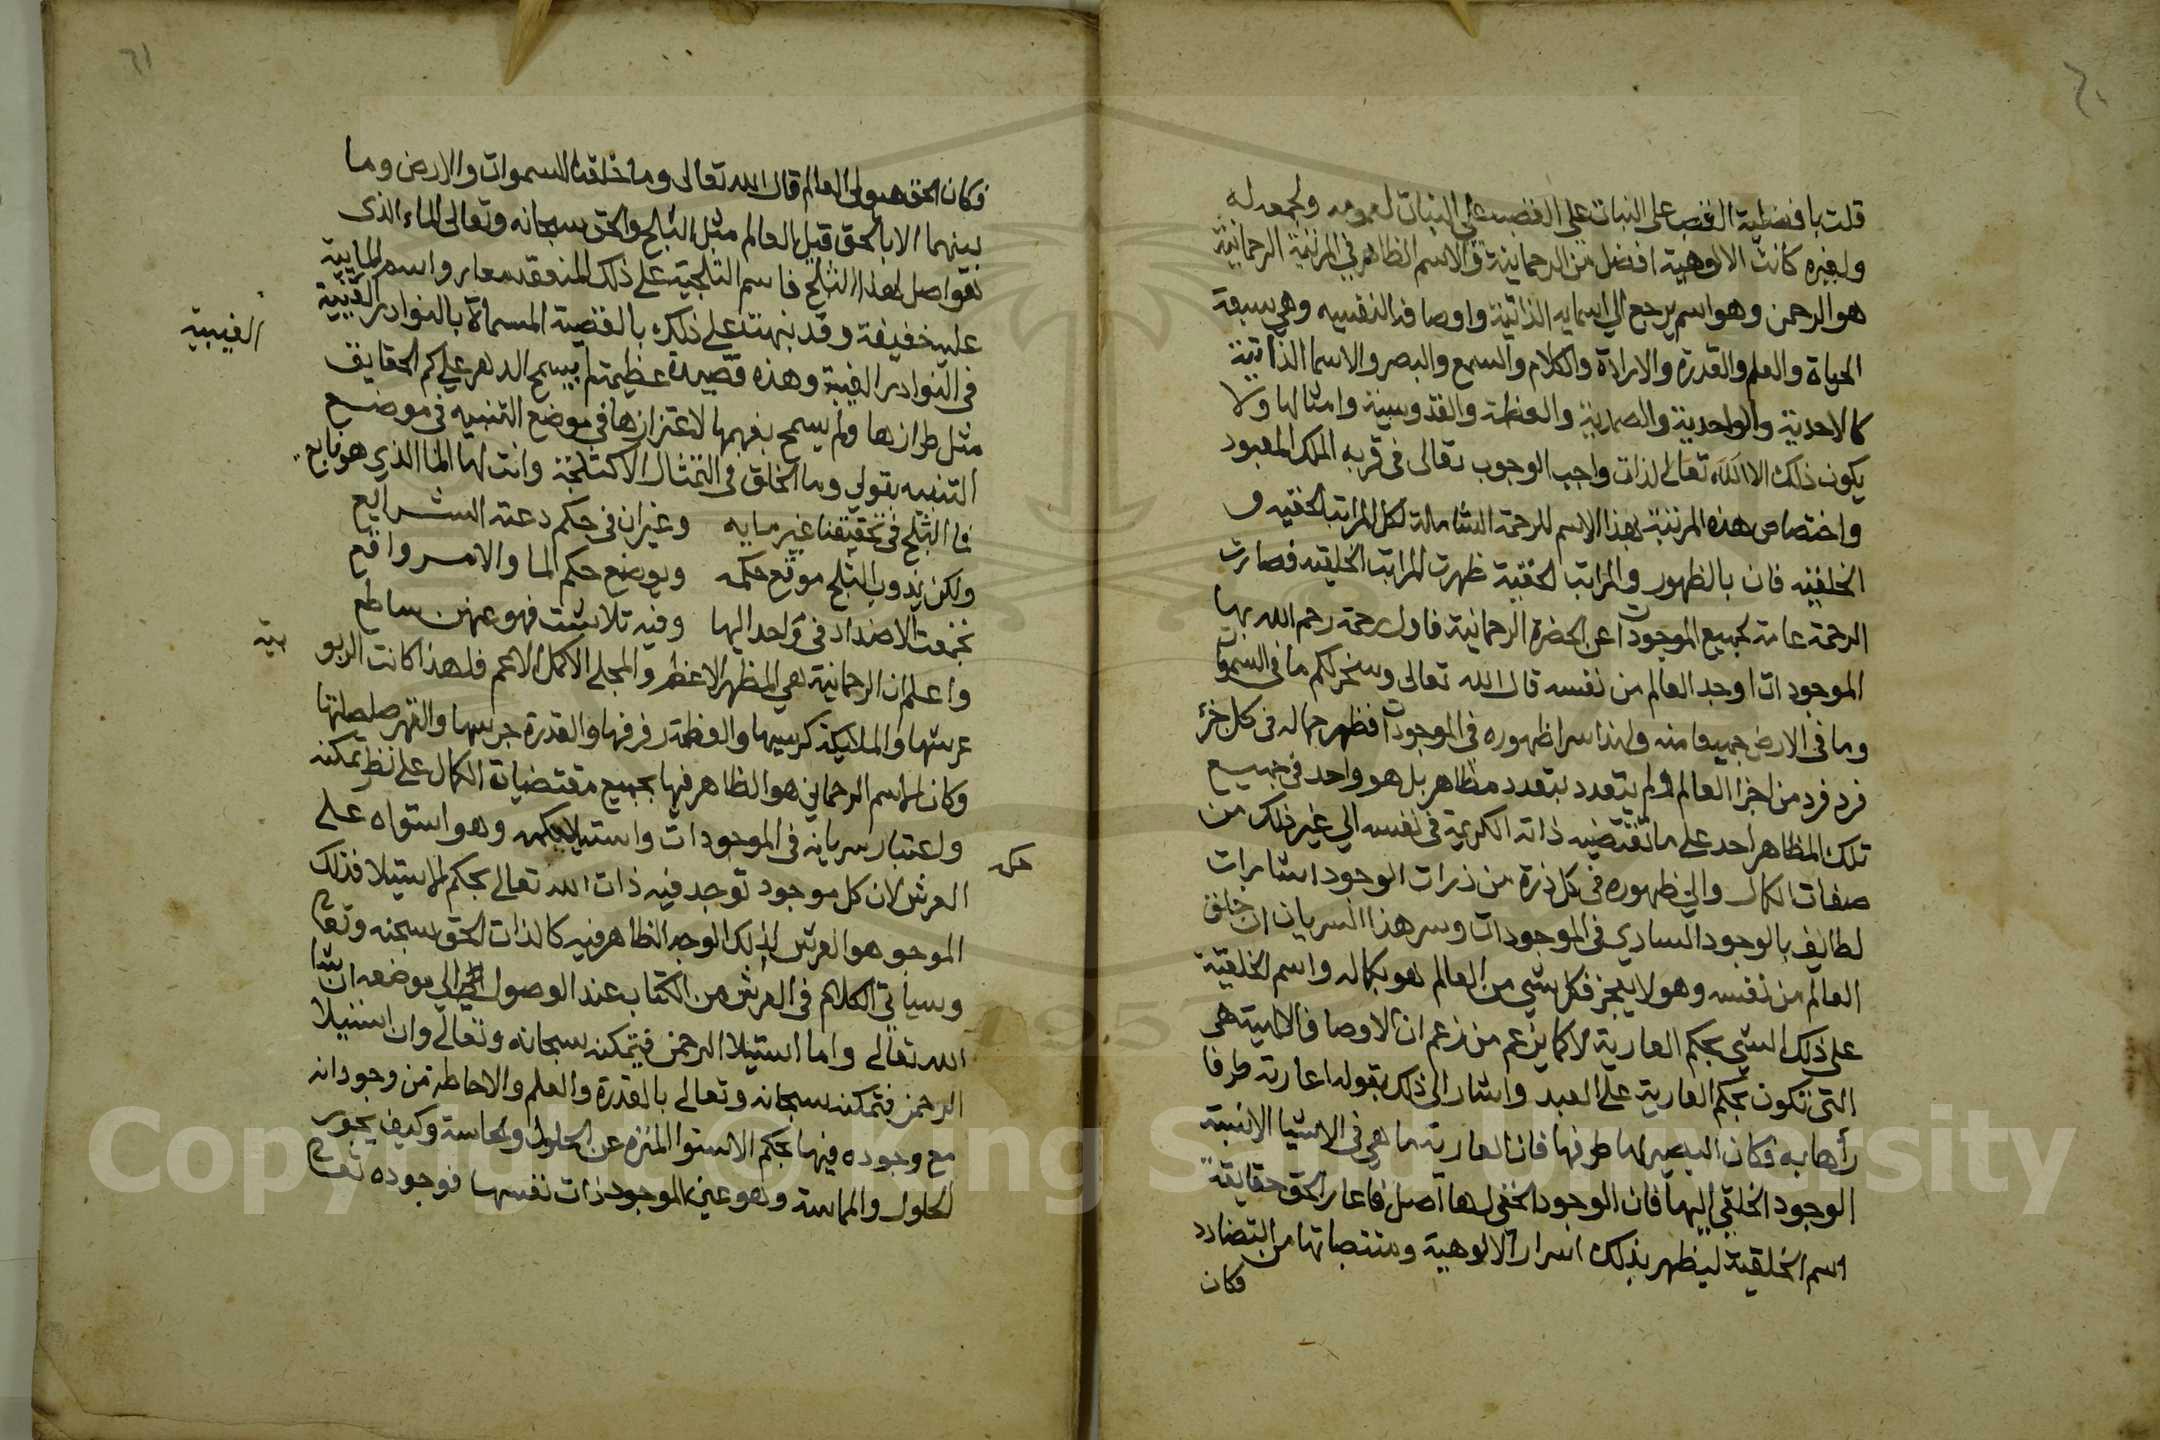 ٦٠
قلت بافضلية القصب على النبات على القصب على النبات لعمومه ولجمعه له
ولغيره كانت الالوهية افضل من الرحمانية والاسم الظاهر في المرتبة الرحمانية
هو الرحمن وهو اسم يرجع الي اسمايه الذاتية واوصافه النفسيه وهي سبعة
الحياة والعلم والقدرة والارادة والكلام والسمع والبصر والاسما الذاتية
كالاحدية والواحدية والصمدية والعظمة والقدوسية وامثالها ولا
يكون ذلك الا الله تعالى لذات واجب الوجوب تعالى في قربه الملك المعبود
واختصاص هذه المرتبة بهذا الاسم للرحمة الشاملة لكل المراتب الحقيه و
الخلقيه فان بالظهور والمراتب الحقية ظهرت المراتب الخلقيه فصارت
الرحمة عامة لجميع الموجودات عن الحضرة الرحمانية فاول رحمة رحم الله بها
الموجودات اوجد العالم من نفسه قال الله تعالى وسخر لكم ما في السموات
وما في الارض جميعا منه ولهذا سرا ظهوره في الموجودات فظهر جماله في كل جزء
فرد فرد من اجزا العالم ولم يتعدد بتعدد مظاهر بل هو واحد في جميع
تلك المظاهر احد على ما تقتضيه ذاته الكريمة في نفسه الي غير ذلك من
صفات الكمال والي ظهوره في كل ذرة من ذرات الوجود اشارات
لطايف بالوجود الساري في الموجودات وسر هذا السريان ان خلق
العالم من نفسه وهو لا يتجز فكل شي من العالم هو بكماله واسم الخلقية
على ذلك الشي بحكم العارية لا كما يزعم من زعم ان الاوصاف الالهية هي
التي تكون بحكم العارية على العبد واشار الى ذلك بقوله اعارته طرفا
رأها به فكان البصير لها طرفها فان العارية ما هي في الاشيا الا نسبة
الوجود الخلقي اليها فان الوجود الحقي لها اصل فاعار الحق حقايقه
اسم الخلقية ليظهر بذلك اسرار الالوهية ومقتضياتها من التضادد
فكان
٦١
فكان الحق هيولى العالم قال الله تعالى وما خلقنا السموات والارض وما
بينهما الا بالحق قبل العالم مثل الثلج والحق سبحانه وتعالى الماء الذى
هو اصل لهذا الثلج فاسم الثلجية على ذلك المنعقد معار واسم المايية
عليه خفيفة وقد نبهت على ذلك بالقصية المسماة بالبوادر الغيبية
الغيبية
في النوادر الغيبة وهذه قصيدة عظيمة لم يسمح الدهر على كم الحقايق
مثل طرازها ولم يسمح بفهمها لاعتزازها في موضع التنبيه في موضع
التنبيه بقولي وما الخلق في التمثال الا كثلجة وانت لها الما الذي هو نابع
فما الثلج في تحقيقنا غير مايه وغيران في حكم دعته الشرايع
ولكن يذوب الثلج موقع حكمه ويوضع حكم الما والامر واقع
تجمعت الاضداد في واحد البها وفيه تلاشت فهو عنهن ساطع
واعلم ان الرحمانية هي المظهر الاعظم والمجلى الاكمل الاعم فلهذا كانت الربو
بية
عرشها والملايكة كرسيها والعظمة رفرفها والقدرة جرسها والقهر صلصلتها
وكان الاسم الرحماني هو الظاهر فيها بجميع مقتضيات الكمال على نظر تمكنه
واعتبار سريانه في الموجودات واستيلا حكمه وهو استواه على
حكمه
العرش لان كل موجود توجد فيه ذات الله تعالى بحكم الاستيلا فذلك
الموجو هو العرش لذلك الوجه الظاهر فيه كالذات الحق سبحنه وتعا
وسيأتي الكلام في العرش من الكتاب عند الوصول الي موضعه ان شا
الله تعالى واما استيلا الرحمن فتمكنه سبحانه وتعالى وان استيلا
الرحمن فتمكنه سبحانه وتعالى بالقدرة والعلم والاحاطة من وجوداته
مع وجوده فيها بحكم الاستوا المنزه عن الحلول والمماسة وكيف يجوز
الحلول والمماسة وهو عين الموجودات نفسها فوجوده تعا
Copyright © King Saud University